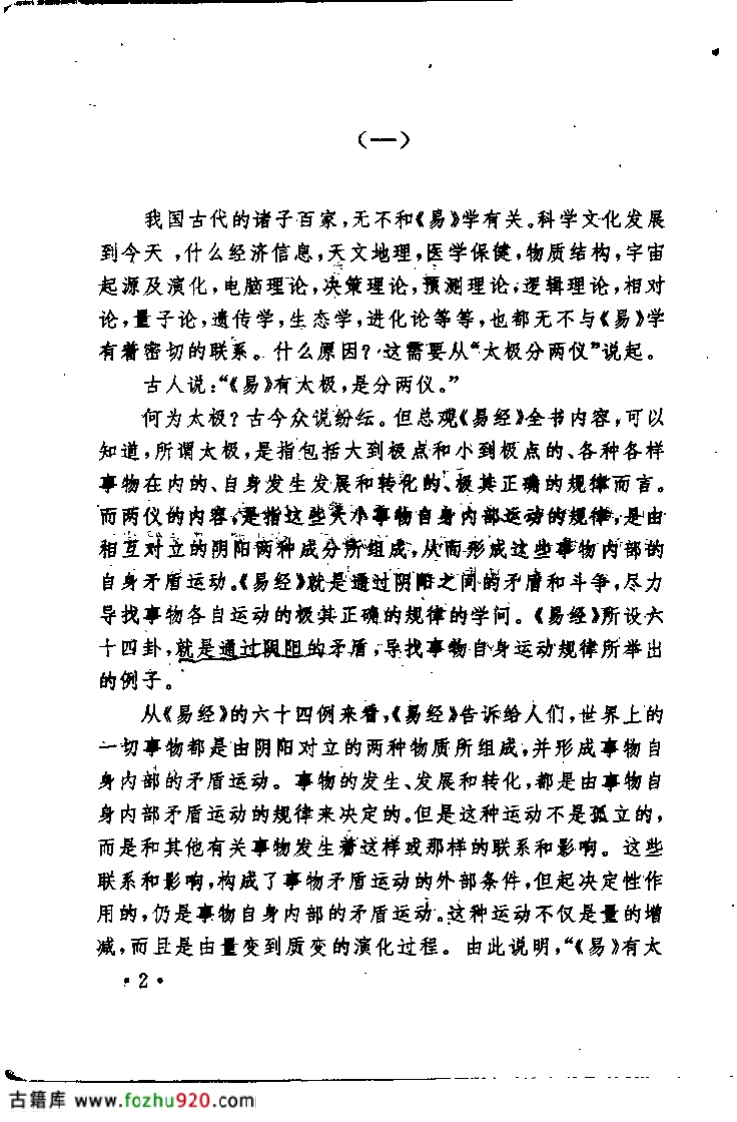 (一)
我国古代的诸子百家,无不和《易》学有关。科学文化发展
到今天,什么经济信息,天文地理,医学保健,物质结构,宇宙
起源及演化,电脑理论,决策理论,预测理论,逻辑理论,相对
论,量子论,遗传学,生态学,进化论等等,也都无不与《易》学
有着密切的联系。什么原因?这需要从“太极分两仪”说起。
古人说:“《易》有太极,是分两仪。”
何为太极?古今众说纷纭。但总观《易经》全书内容,可以
知道,所谓太极,是指包括大到极点和小到极点的、各种各样
事物在内的、自身发生发展和转化的、极其正确的规律而言。
而两仪的内容,是指这些大小事物自身内部运动的规律,是由
相互对立的阴阳两种成分所组成,从而形成这些事物内部的
自身矛盾运动。《易经》就是通过阴阳之间的矛盾和斗争,尽力
寻找事物各自运动的极其正确的规律的学问。《易经》所设六
十四卦,就是通过阴阳的矛盾,寻找事物自身运动规律所举出
的例子。
从《易经》的六十四例来看,《易经》告诉给人们,世界上的
一切事物都是由阴阳对立的两种物质所组成,并形成事物自
身内部的矛盾运动。事物的发生、发展和转化,都是由事物自
身内部矛盾运动的规律来决定的。但是这种运动不是孤立的,
而是和其他有关事物发生着这样或那样的联系和影响。这些
联系和影响,构成了事物矛盾运动的外部条件,但起决定性作
用的,仍是事物自身内部的矛盾运动。这种运动不仅是量的增
减,而且是由量变到质变的演化过程。由此说明,“《易》有太
·2·
古籍库 www.fozhu920.com